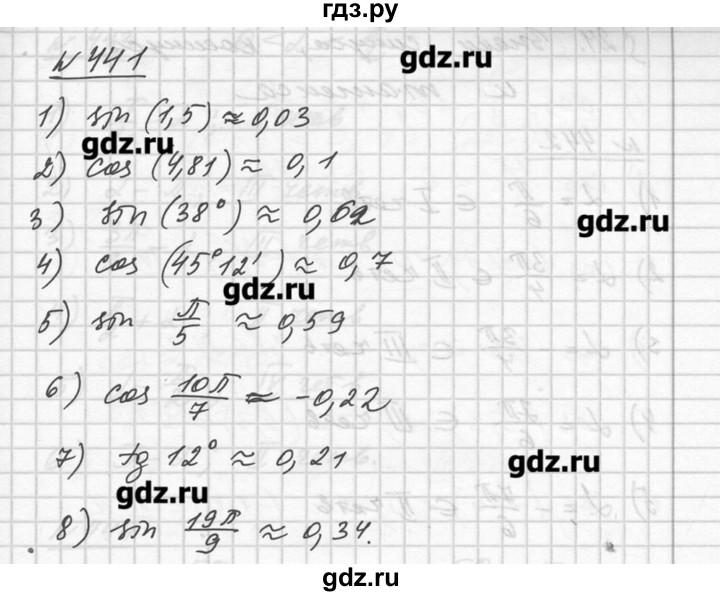 гдз.ру
№ 441
gdz.ru
1) sin (1,5) ≈ 0,03
gdz.ru
2) cos (4,81) ≈ 0,1
3) sin (38°) ≈ 0,62
gdz.ru
4) cos (45°12′) ≈ 0,7
gdz.ru
5) sin π/5 ≈ 0,59
6) cos 10π/7 ≈ -0,22
7) tg 12° ≈ 0,21
gdz.ru
gdz.ru
8) sin 19π/9 ≈ 0,34.
gdz.ru